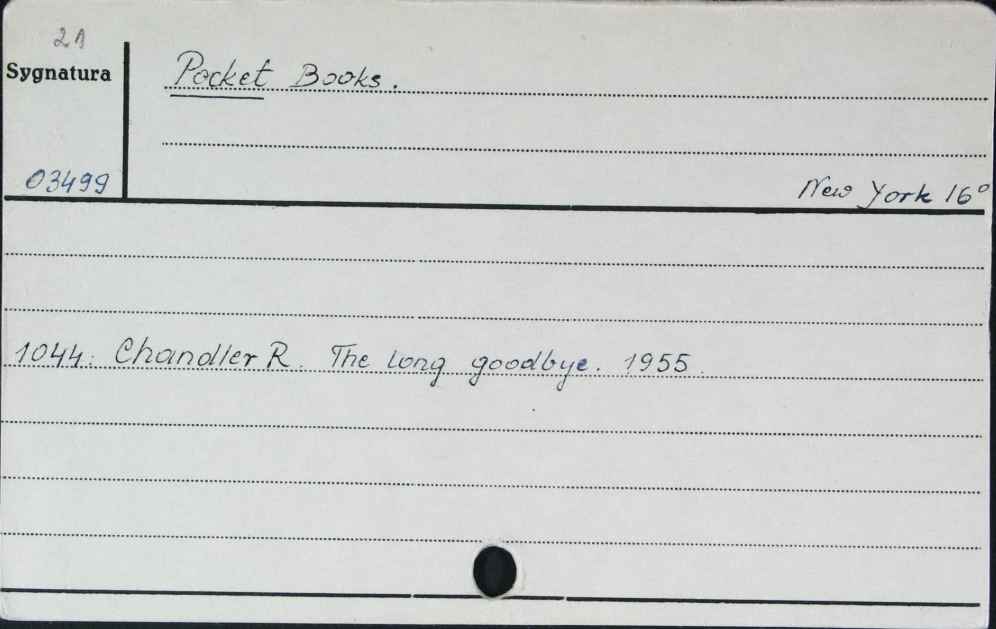 21
Sygnatura
Pocket Books.
03499
New York 16°
1044. Chandler R. The long goodbye. 1955.